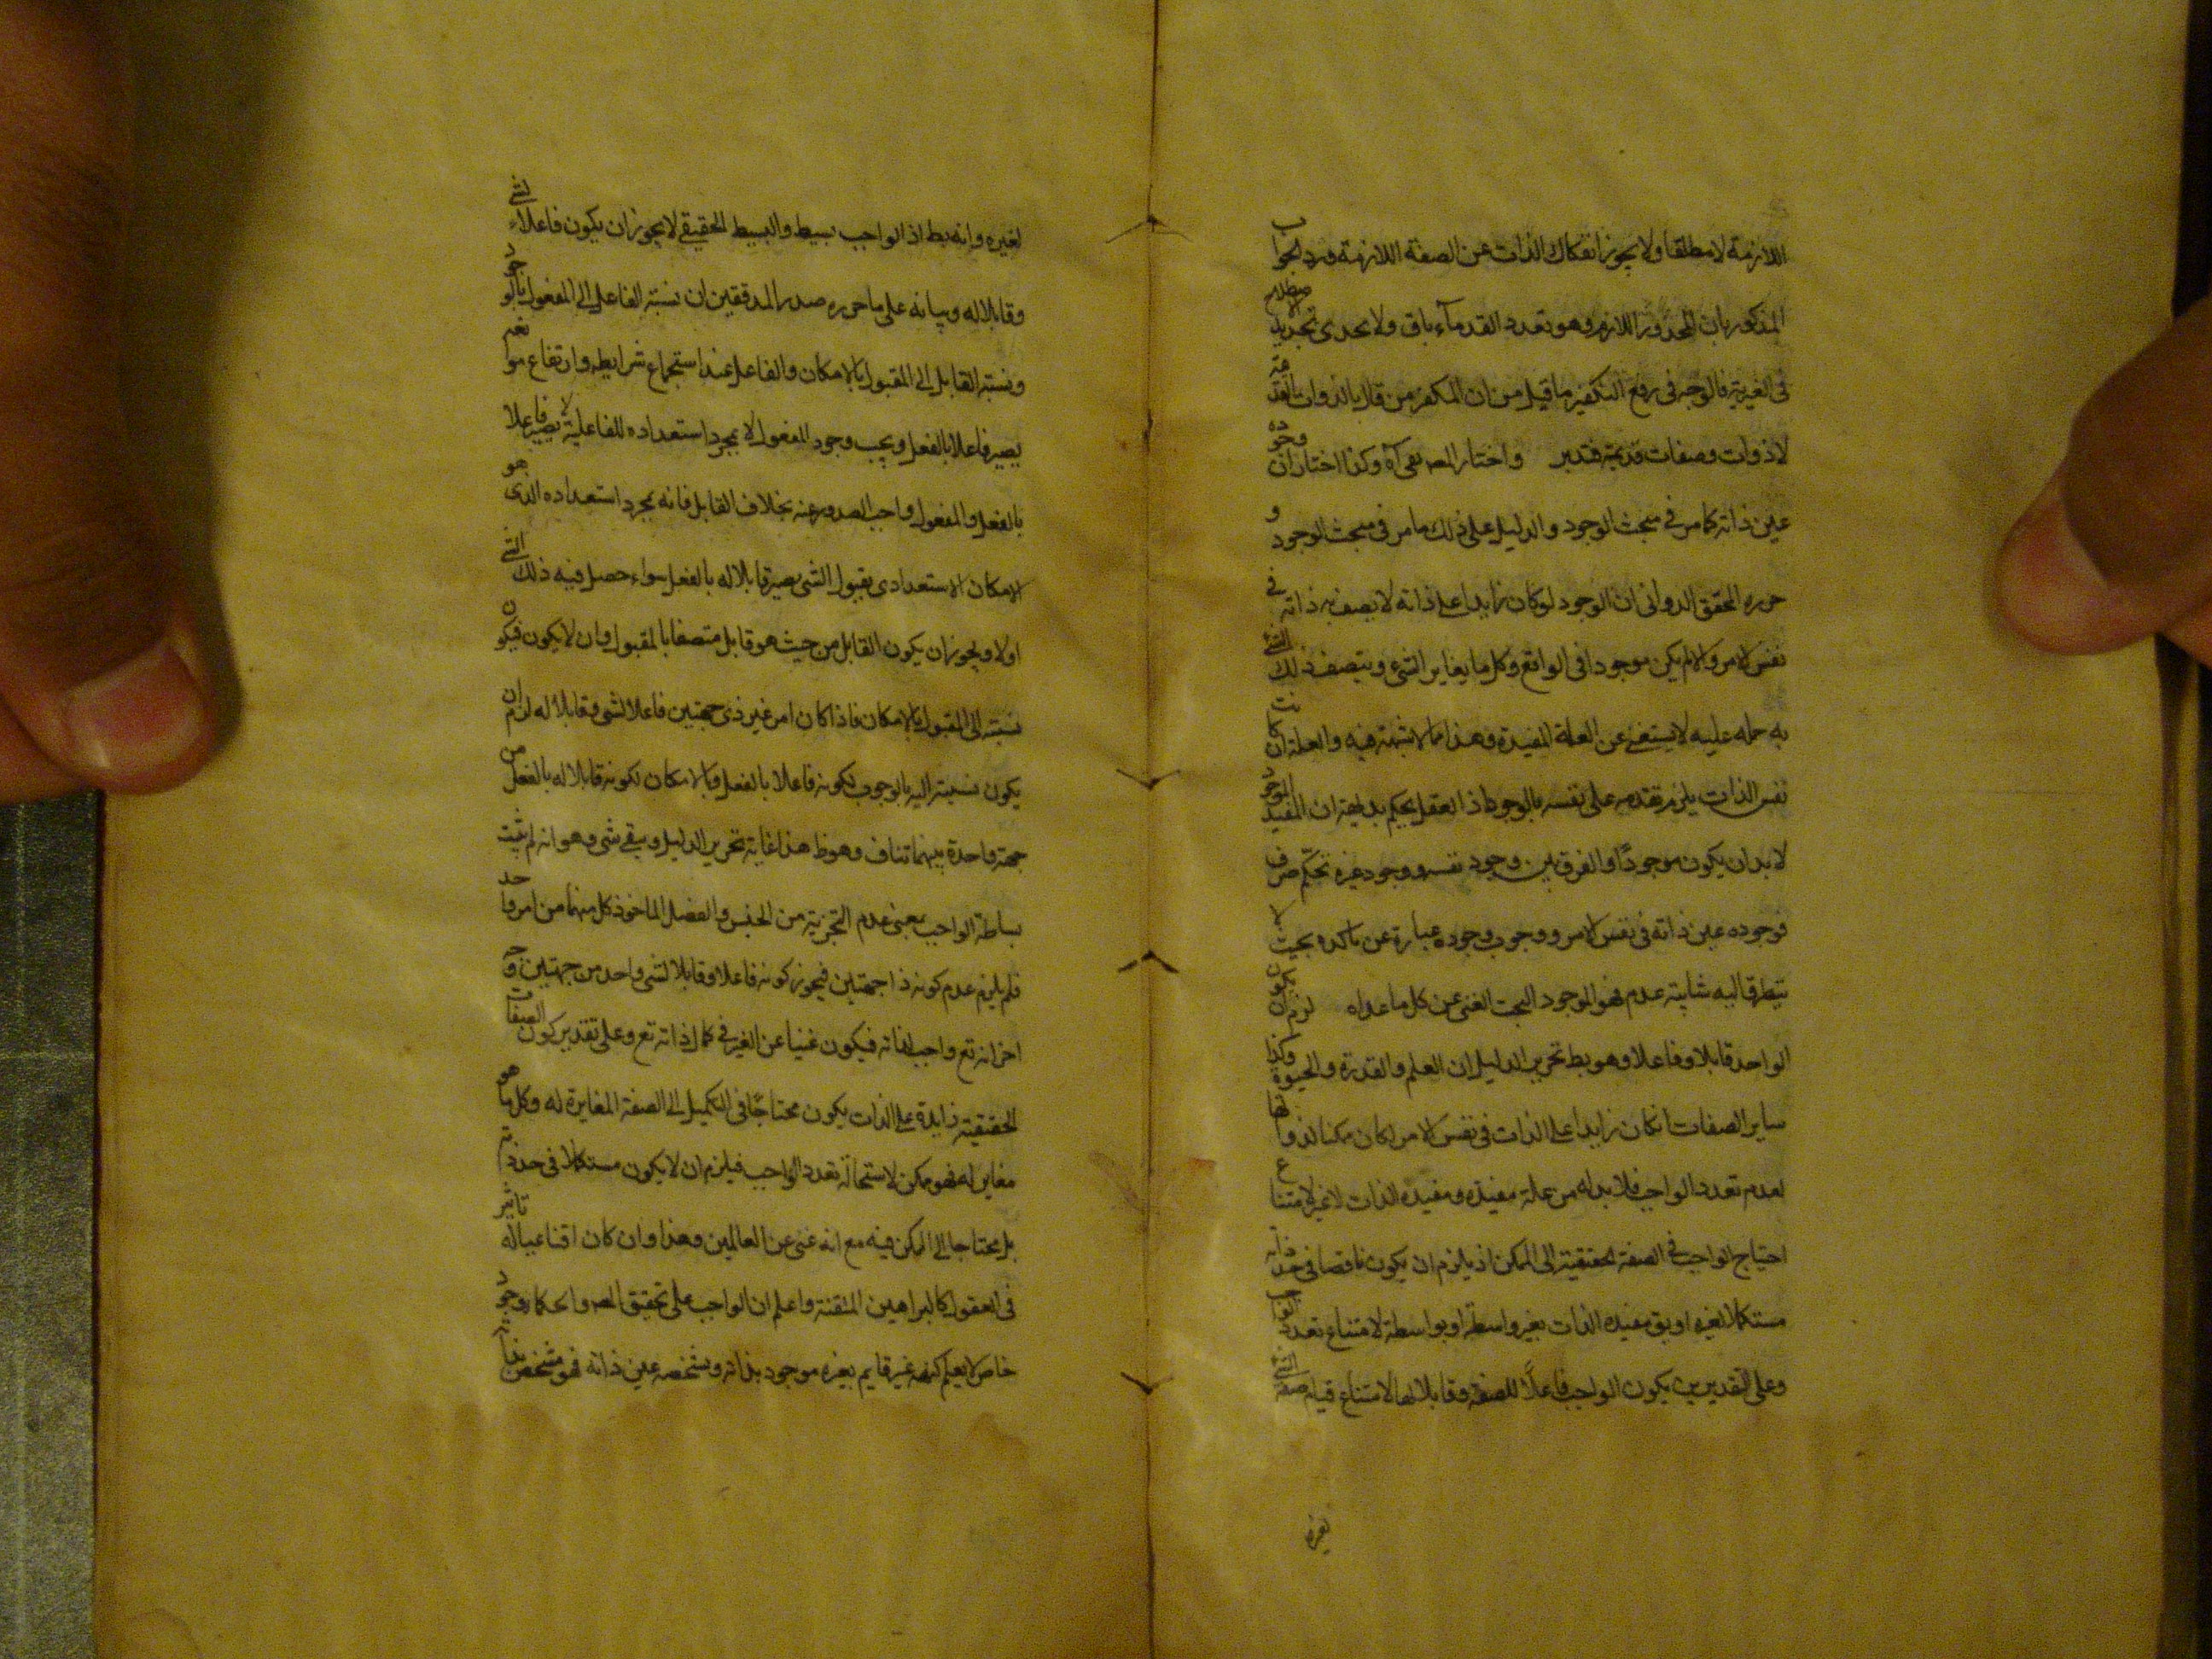 اللازمة لا مطلقا ولا يجوز انفكاك الذات عن الصفة اللازمة ورد الجواب
المذكور بان المحذور اللازم وهو تعدد القدمآء باق ولا يجدى تجديد اصطلاح
فى الغيرية فالوجه فى رفع التكفير ما قيل من ان المكفر من قال بالذوات القديمة
لا ذوات وصفات قديمة فتدبر واختار المص نفى آه وكذا اختار ان وجوده
عين ذاته كما مر فى مبحث الوجود والدليل على ذلك ما مر فى مبحث الوجود و
حرره المحقق الدوانى ان الوجود لو كان زايدا على ذاته لا يصف به ذاته فى
نفس الامر والا لم يكن موجودا فى الواقع وكل ما يغاير الشى ويتصف ذلك الشئ
به حمله عليه لا يستغنى عن العلة المفيدة وهذا مما لا شبهة فيه والعلة ان كانت
نفس الذات يلزم تقدمه على نفسه بالوجود اذ العقل يحكم بداهة ان المفيد الموجود
لا بد ان يكون موجودًا والفرق بين وجود نفسه ووجود غيره تحكّم صرف
فوجوده عين ذاته فى نفس الامر ووجوب وجوده عبارة عن تاكده بحيث لا
يتطرق اليه شايبة عدم فهو الموجود البحت الغنى عن كل ما عداه لزم ان يكون
الواحد قابلا وفاعلا وهو بط تحرير الدليل ان العلم والقدرة والحيوة وكذا
ساير الصفات ان كان زايدا على الذات فى نفس الامر لكان ممكنا لذواتها
لعدم تعدد الواجب فلا بد له من علة مفيدة ومفيده الذات لا غير لامتناع
احتياج الواجب فى الصفة الحقيقية الى الممكن اذ يلزم ان يكون ناقصا فى حد ذاته
مستكملا لغيره او يق مفيده الذات بغير واسطة او بواسطة لامتناع تعدد الواجب
وعلى التقديرين يكون الواجب فاعلًا للصفة وقابلا لها لامتناع قيام صفة الشئ
بغيره
لغيره وانه بط اذ الواجب بسيط والبسيط الحقيقى لا يجوز ان يكون فاعلا لشئ
وقابلا له وبيانه على ما حرره صدر المدققين ان نسبة الفاعل الى المفعول بالوجود
ونسبة القابل الى المقبول بالامكان والفاعل عند استجماع شرايطه وارتفاع موانعه
يصير فاعلا بالفعل ويجب وجود المفعول لا بمجرد استعداده للفاعلية لا يصير فاعلا
بالفعل والمفعول واجب الصدور عنه بخلاف القابل فانه بمجرد استعداده الذى هو
الامكان الاستعدادى بقبول الشى يصير قابلا له بالفعل سواء حصل فيه ذلك الشئ
اولا ويجوز ان يكون القابل من حيث هو قابل متصفا بالمقبول وان لا يكون فيكون
نسبته الى المقبول بالامكان فاذا كان امر غير ذى جهتين فاعلا لشى وقابلا له لزم ان
يكون نسبته اليه بالوجوب لكونه فاعلا بالفعل وبالامكان لكونه قابلا له بالفعل من
جهة واحدة بينهما تناف وهو ظ هذا غاية تحرير الدليل وبقى شى وهو انه لم يثبت
بساطة الواجب بمعنى عدم التجزية من الجنس والفصل الماخوذ كل منهما من امر واحد
فلم يلزم عدم كونه ذا جهتين فيجوز كونه فاعلا وقابلا لشى واحد من جهتين وجه
اخر انه تع واجب لذاته فيكون غنيا عن الغير فى كمال ذاته تع وعلى تقدير كون الصفات
الحقيقية زايدة على الذات يكون محتاجًا فى التكميل الى الصفة المغايرة له وكل ما هو
مغاير له فهو ممكن لاستحالة تعدد الواجب فيلزم ان لا يكون مستكملا فى حد ذاته
بل محتاجا الى الممكن فيه مع انه غنى عن العالمين وهذا وان كان اقناعيا له تاثير
فى العقول كالبراهين المتقنة واعلم ان الواجب على تحقيق المص والحكماء وجود
خاص لا يعلم كنهه غير قايم بغيره موجود بذاته وتشخصه عين ذاته فهو متشخص بذاته